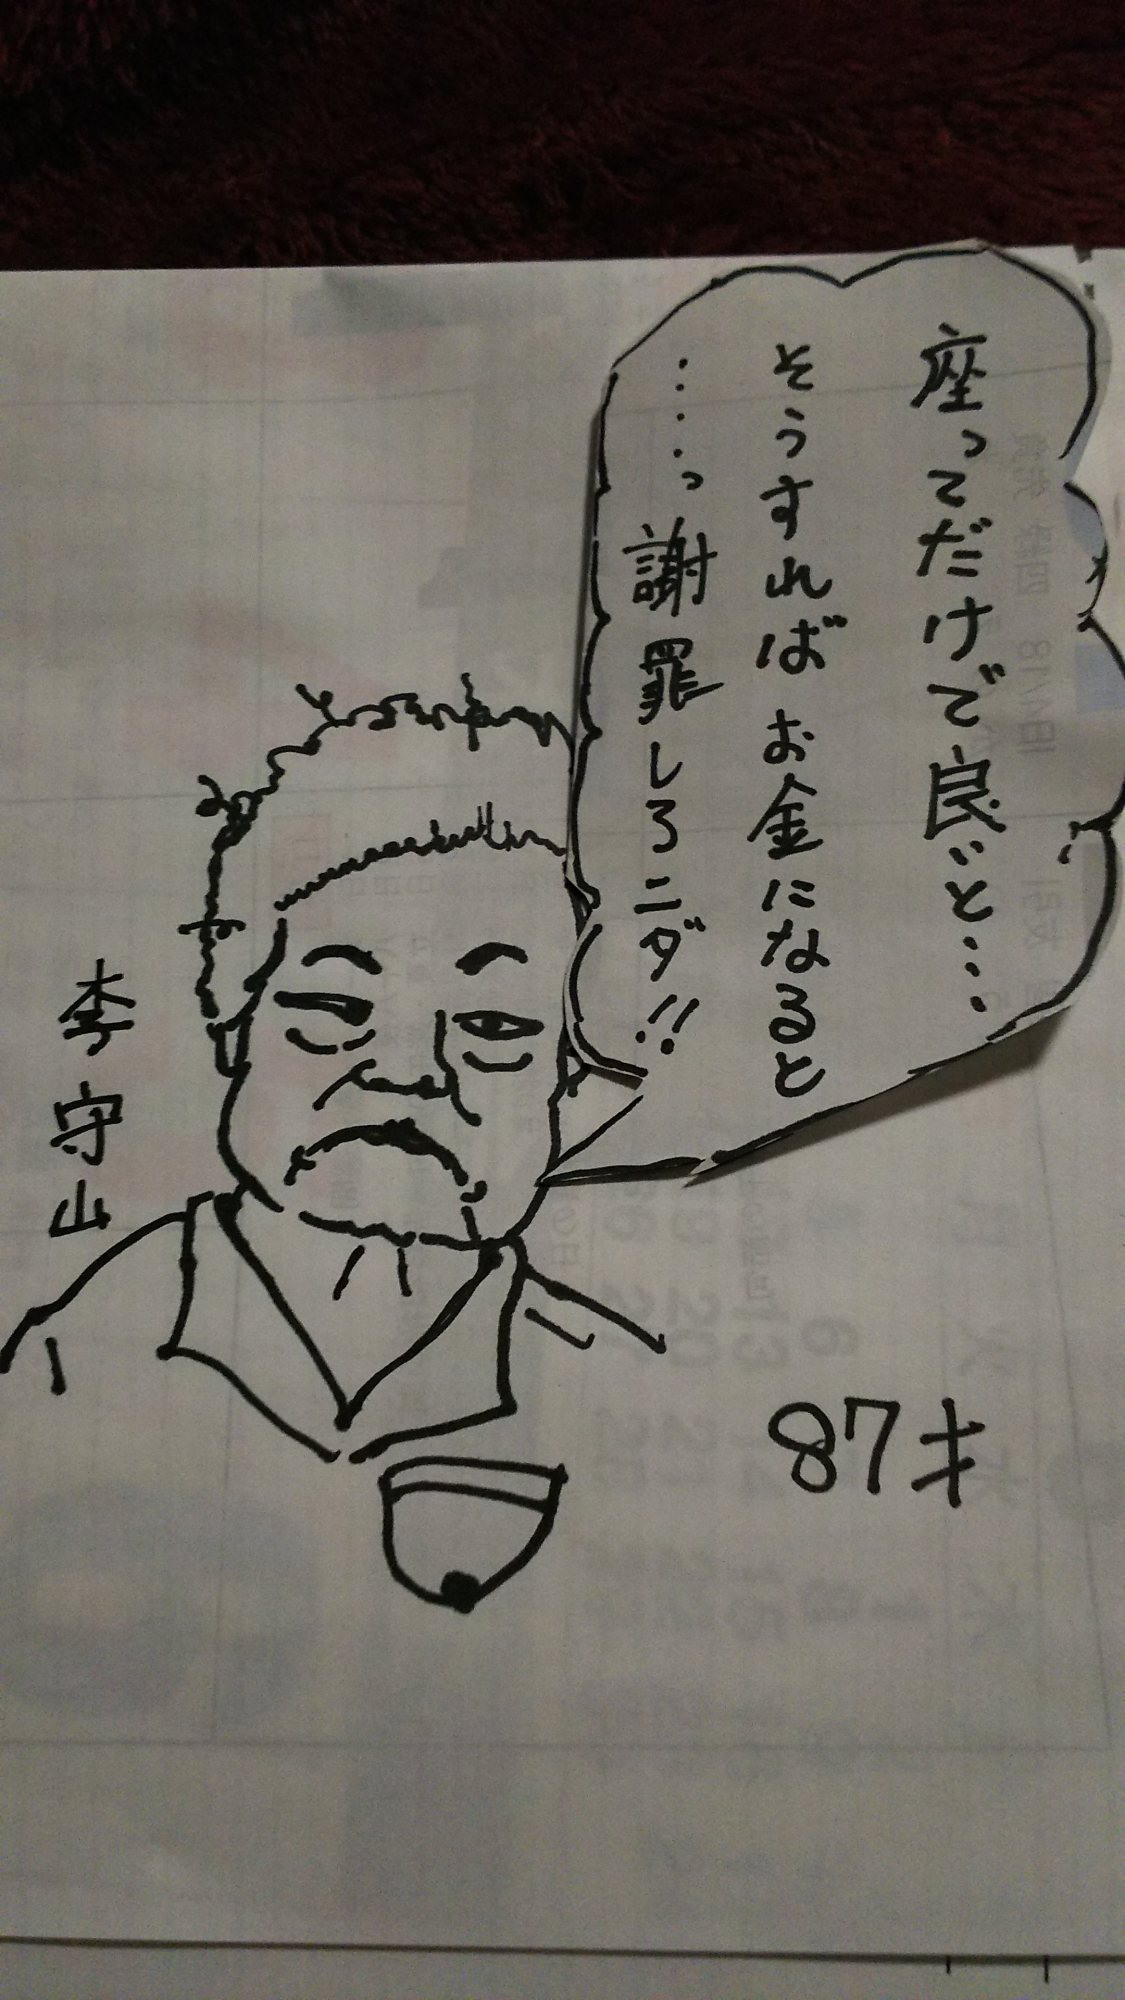 座ってだけで良いと…
そうすればお金になると
……っ謝罪しろニダ!!
李守山
87才